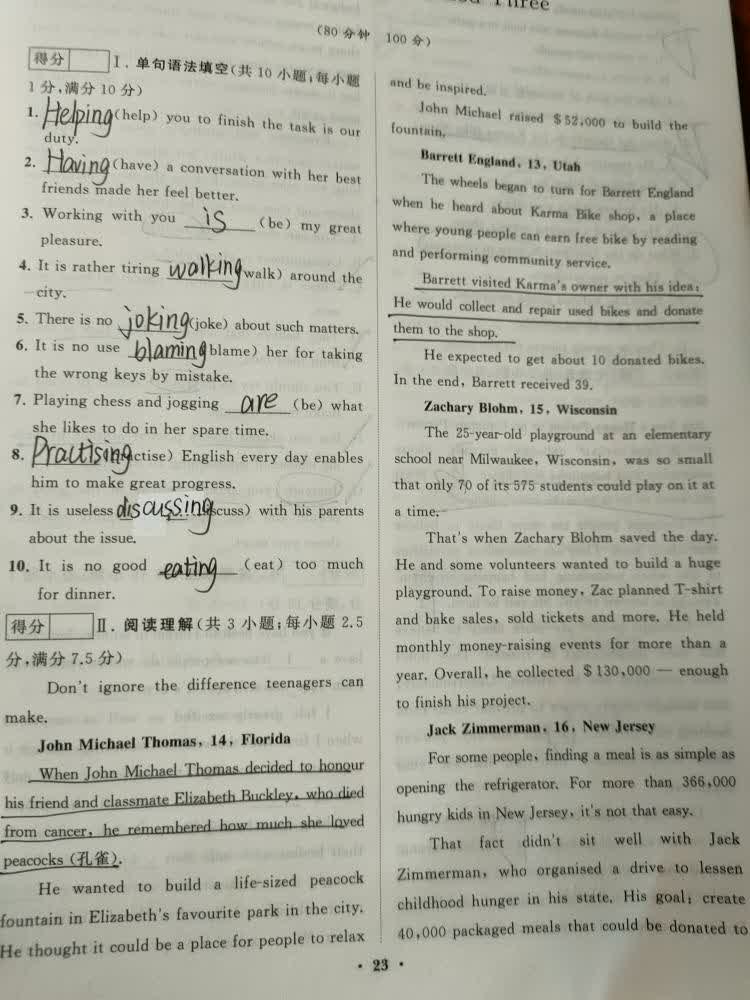 Three
(80分钟 100分)
得分
Ⅰ. 单句语法填空(共 10 小题;每小题
1 分,满分 10 分)
1. Helping (help) you to finish the task is our
duty.
2. Having (have) a conversation with her best
friends made her feel better.
3. Working with you is (be) my great
pleasure.
4. It is rather tiring walking walk) around the
city.
5. There is no joking (joke) about such matters.
6. It is no use blaming blame) her for taking
the wrong keys by mistake.
7. Playing chess and jogging are (be) what
she likes to do in her spare time.
8. Practising actise) English every day enables
him to make great progress.
9. It is useless discussing scuss) with his parents
about the issue.
10. It is no good eating (eat) too much
for dinner.
得分
Ⅱ. 阅读理解(共 3 小题;每小题 2.5
分,满分 7.5 分)
Don't ignore the difference teenagers can
make.
John Michael Thomas, 14, Florida
When John Michael Thomas decided to honour
his friend and classmate Elizabeth Buckley, who died
from cancer, he remembered how much she loved
peacocks (孔雀).
He wanted to build a life-sized peacock
fountain in Elizabeth's favourite park in the city.
He thought it could be a place for people to relax
and be inspired.
John Michael raised $52,000 to build the
fountain.
Barrett England, 13, Utah
The wheels began to turn for Barrett England
when he heard about Karma Bike shop, a place
where young people can earn free bike by reading
and performing community service.
Barrett visited Karma's owner with his idea:
He would collect and repair used bikes and donate
them to the shop.
He expected to get about 10 donated bikes.
In the end, Barrett received 39.
Zachary Blohm, 15, Wisconsin
The 25-year-old playground at an elementary
school near Milwaukee, Wisconsin, was so small
that only 70 of its 575 students could play on it at
a time.
That's when Zachary Blohm saved the day.
He and some volunteers wanted to build a huge
playground. To raise money, Zac planned T-shirt
and bake sales, sold tickets and more. He held
monthly money-raising events for more than a
year. Overall, he collected $130,000 — enough
to finish his project.
Jack Zimmerman, 16, New Jersey
For some people, finding a meal is as simple as
opening the refrigerator. For more than 366,000
hungry kids in New Jersey, it's not that easy.
That fact didn't sit well with Jack
Zimmerman, who organised a drive to lessen
childhood hunger in his state. His goal: create
40,000 packaged meals that could be donated to
· 23 ·